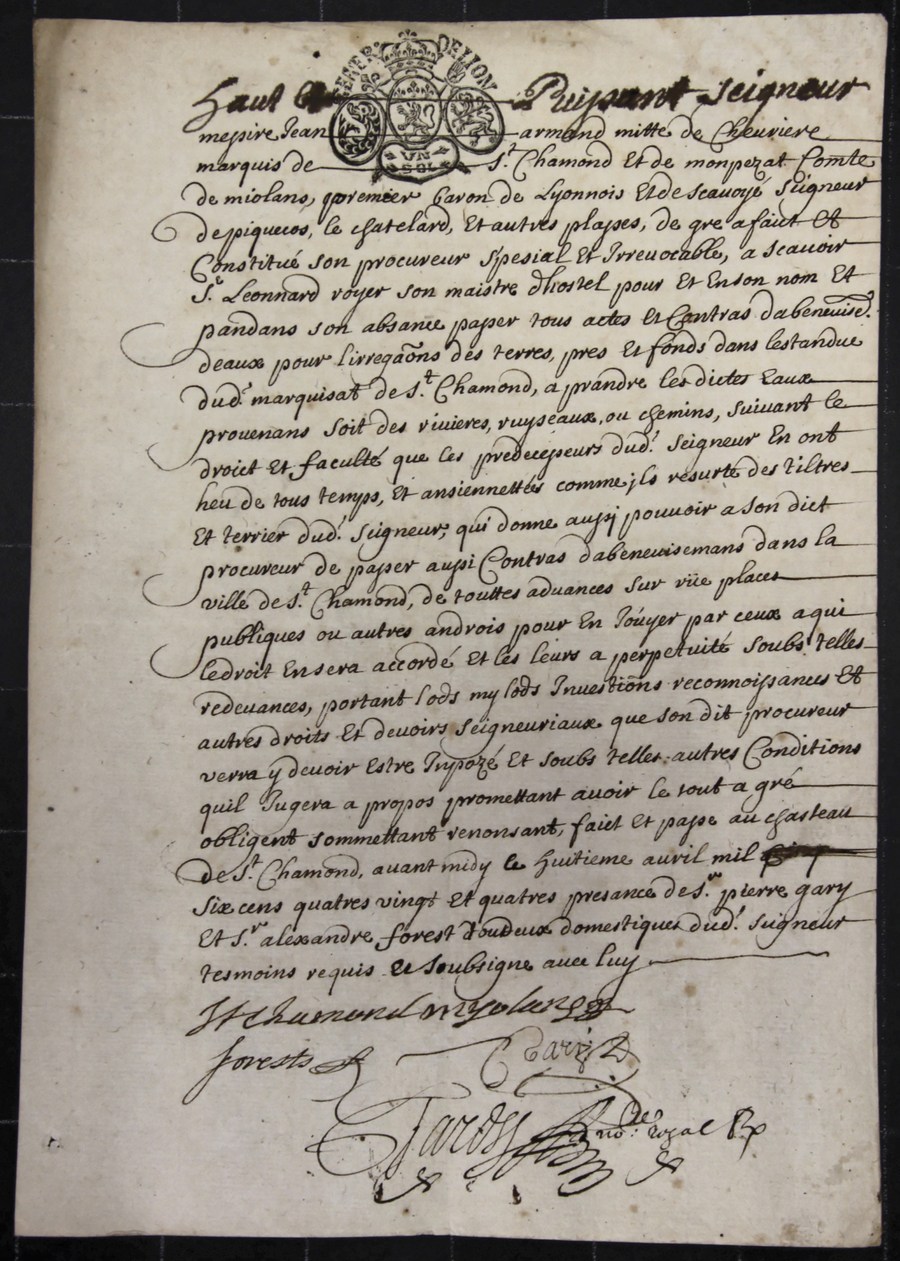 GENER. DE LION
VN SOL
Haut Et Puissant Seigneur
messire Jean armand mitte de Cheuriere
marquis de St. Chamond Et de monpezat Comte
de miolans, premier baron de Lyonnois Et de Scauoye Seigneur
de piquecos, le chatelard, Et autres plasses, de gre a faict Et
Constitué son procureur spesial Et Irreuocable, a scauoir
Sr. Leonnard royer son maistre dhostel pour Et En son nom Et
pandans son absance passer tous actes Et Contras dabeneuised.
deaux pour lirregaõns des terres, pres Et fonds dans lestandue
dud. marquisat de St. Chamond, a prandre les dictes Eaux
prouenans soit des riuieres, ruysseaux, ou chemins, suiuant le
droict Et faculté que les predecesseurs dud. seigneur En ont
heu de tous temps, Et ansiennettés comme ils resurte des tiltres
Et terrier dud. seigneur, qui donne aussi pouuoir a son dict
procureur de passer aussi Contras dabeneuisemans dans la
ville de St. Chamond, de touttes aduances sur rüe places
publiques ou autres androis pour En Joüyer par ceux a qui
le droit En sera accordé Et les leurs a perpetuité soubs telles
redeuances, portant lods mylods Inuestions reconnoissances Et
autres droits Et deuoirs seigneuriaux que son dit procureur
verra y deuoir Estre Impozé Et soubs telles autres Conditions
quil Jugera a propos promettant auoir le tout a gré
obligent sommettant renonsant, faict Et passe au chasteau
de St. Chamond, auant midy le huitieme auril mil
six cens quatres vingt Et quatres presance de Sr. pierre gary
Et Sr. alexandre forest toudeux domestiques dud. seigneur
tesmoins requis Et soubsigne auec luy
St chamond myolans
forests Gary
no.re royal